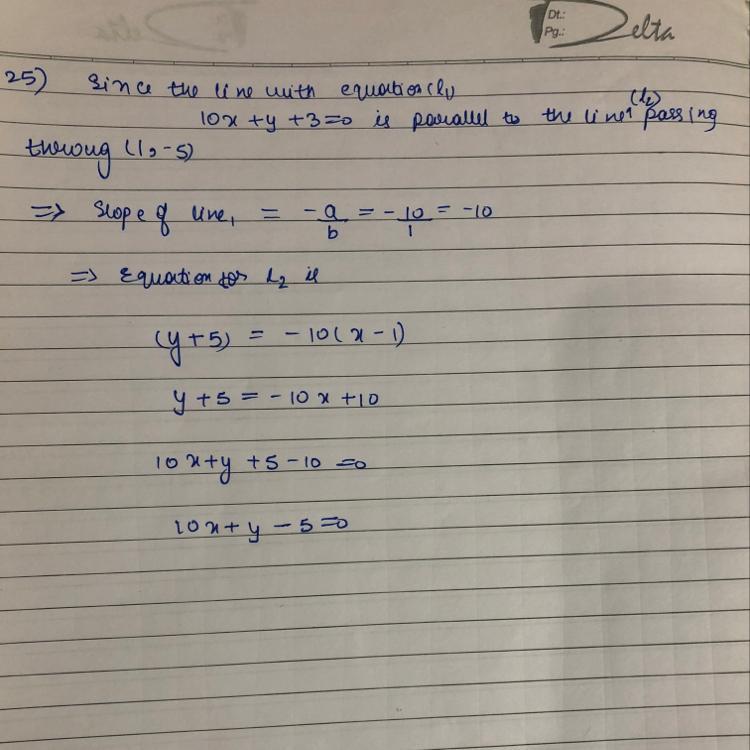 Dt.:
Pg.:
Delta
25) Since the line with equation (L1)
10x + y + 3 = 0 is parallel to the line1 (L2) passing
throug (1, -5)
=> Slope of line1 = -a/b = -10/1 = -10
=> Equation for L2 is
(y + 5) = -10(x - 1)
y + 5 = -10x + 10
10x + y + 5 - 10 = 0
10x + y - 5 = 0